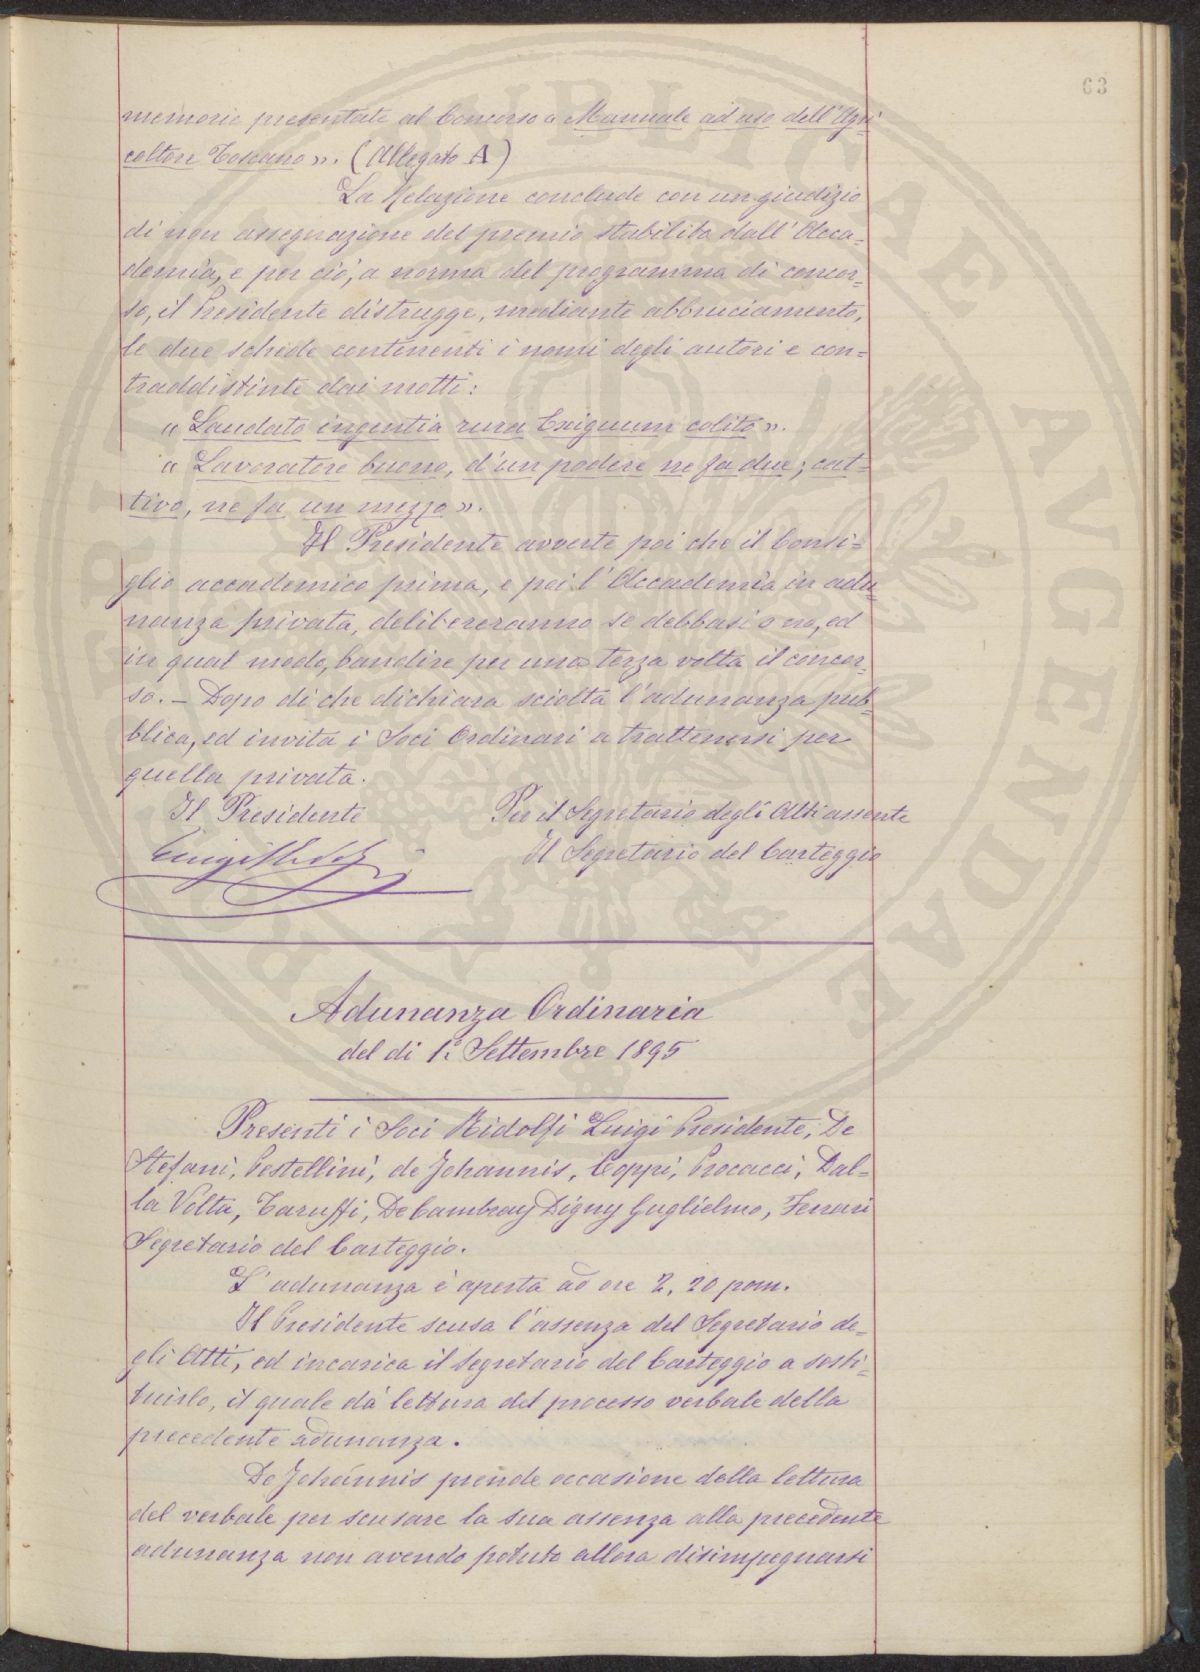 63
memorie presentate al Concorso a Manuale ad uso dell'Agri
coltore Toscano». (Allegato A)
La Relazione conclude con un giudizio
di non assegnazione del premio stabilito dall'Acca=
demia, e per ciò, a norma del programma di concor=
so, il Presidente distrugge, mediante abbruciamento,
le due schede contenenti i nomi degli autori e con=
traddistinte dai motti:
«Laudato ingentia rura Exiguum colito».
«Lavoratore buono, d'un podere ne fa due; cat=
tivo, ne fa un mezzo».
Il Presidente avverte poi che il Consi=
glio accademico prima, e poi l'Accademia in adu=
nanza privata, delibereranno se debbasi o no, ed
in qual modo, bandire per una terza volta il concor=
so. – Dopo di che dichiara sciolta l'adunanza pub=
blica, ed invita i Soci Ordinari a trattenersi per
quella privata.
Il Presidente Per il Segretario degli Atti assente
Luigi Ridolfi Il Segretario del Carteggio
Adunanza Ordinaria
del di 1° Settembre 1895
Presenti i Soci Ridolfi Luigi Presidente, De
Stefani, Pestellini, de Johannis, Coppi, Procacci, Dal=
la Volta, Taruffi, De Cambray Digny Guglielmo, Ferrari
Segretario del Carteggio.
L'adunanza è aperta ad ore 2,20 pom.
Il Presidente scusa l'assenza del Segretario de=
gli Atti, ed incarica il Segretario del Carteggio a sosti=
tuirlo, il quale dà lettura del processo verbale della
precedente adunanza.
De Johannis prende occasione della lettura
del verbale per scusare la sua assenza alla precedente
adunanza non avendo potuto allora disimpegnarsi